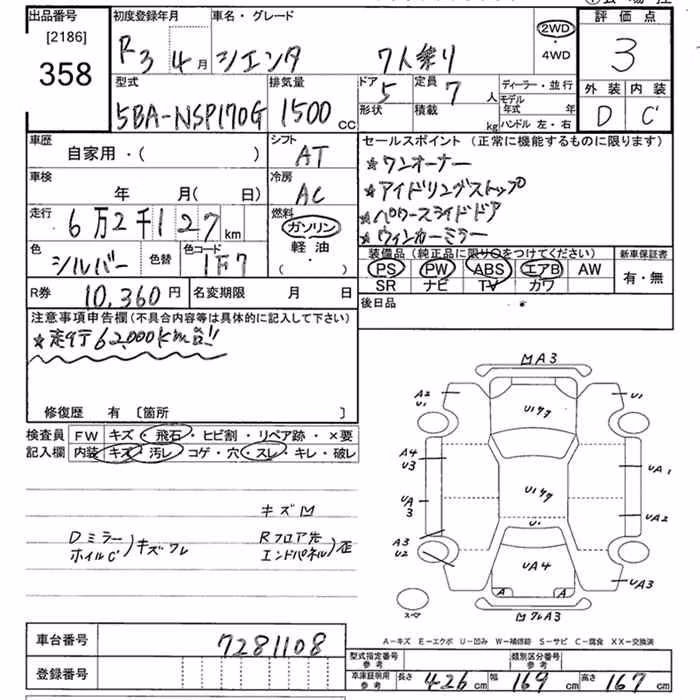 出品番号 初度登録年月 車名・グレード 評価点
[2186]
358
R3 4月 シエンタ 7人乗り 2WD・4WD 3
型式 排気量 ドア 定員 ディーラー・並行 外装 内装
5BA-NSP170G 1500cc 5 7人 モデル年式 年 D C
形状 積載 kg ハンドル 左・右
車歴 シフト セールスポイント (正常に機能するものに限ります)
自家用・( ) AT ★ワンオーナー
車検 冷房 ★アイドリングストップ
年 月( 日) AC ★パワースライドドア
走行 燃料 ★ウィンカーミラー
6万2千127km ガソリン
軽油
( ・ )
色 シルバー 色替 色コード 1F7
装備品 (純正品に限り○をつけてください) 新車保証書
PS PW ABS エアB AW 有・無
SR ナビ TV カワ
R券 10,360円 名変期限 月 日 後日品
注意事項申告欄 (不具合内容等は具体的に記入して下さい)
★走行62000km台!!
修復歴 有 〔箇所 〕
検査員 FW キズ・飛石・ヒビ割・リペア跡・×要
記入欄 内装 キズ・汚レ・コゲ・穴・スレ・キレ・破レ
キズM
Dミラー ホイルC )キズワレ
Rフロア先 エンドパネル )歪
MA3
A2 U1 U1
U147
A4 U3 UA1
U147
UA3 UA2
U1
A3 U2
UA4
UA3
A A
スペア MワレA3
A-キズ E-エクボ U-凹み W-補修跡 S-サビ C-腐食 XX-交換済
車台番号 7281108
型式指定番号 参考 類別区分番号 参考
登録番号 車庫証明用 参考 長さ 426cm 幅 169cm 高さ 167cm